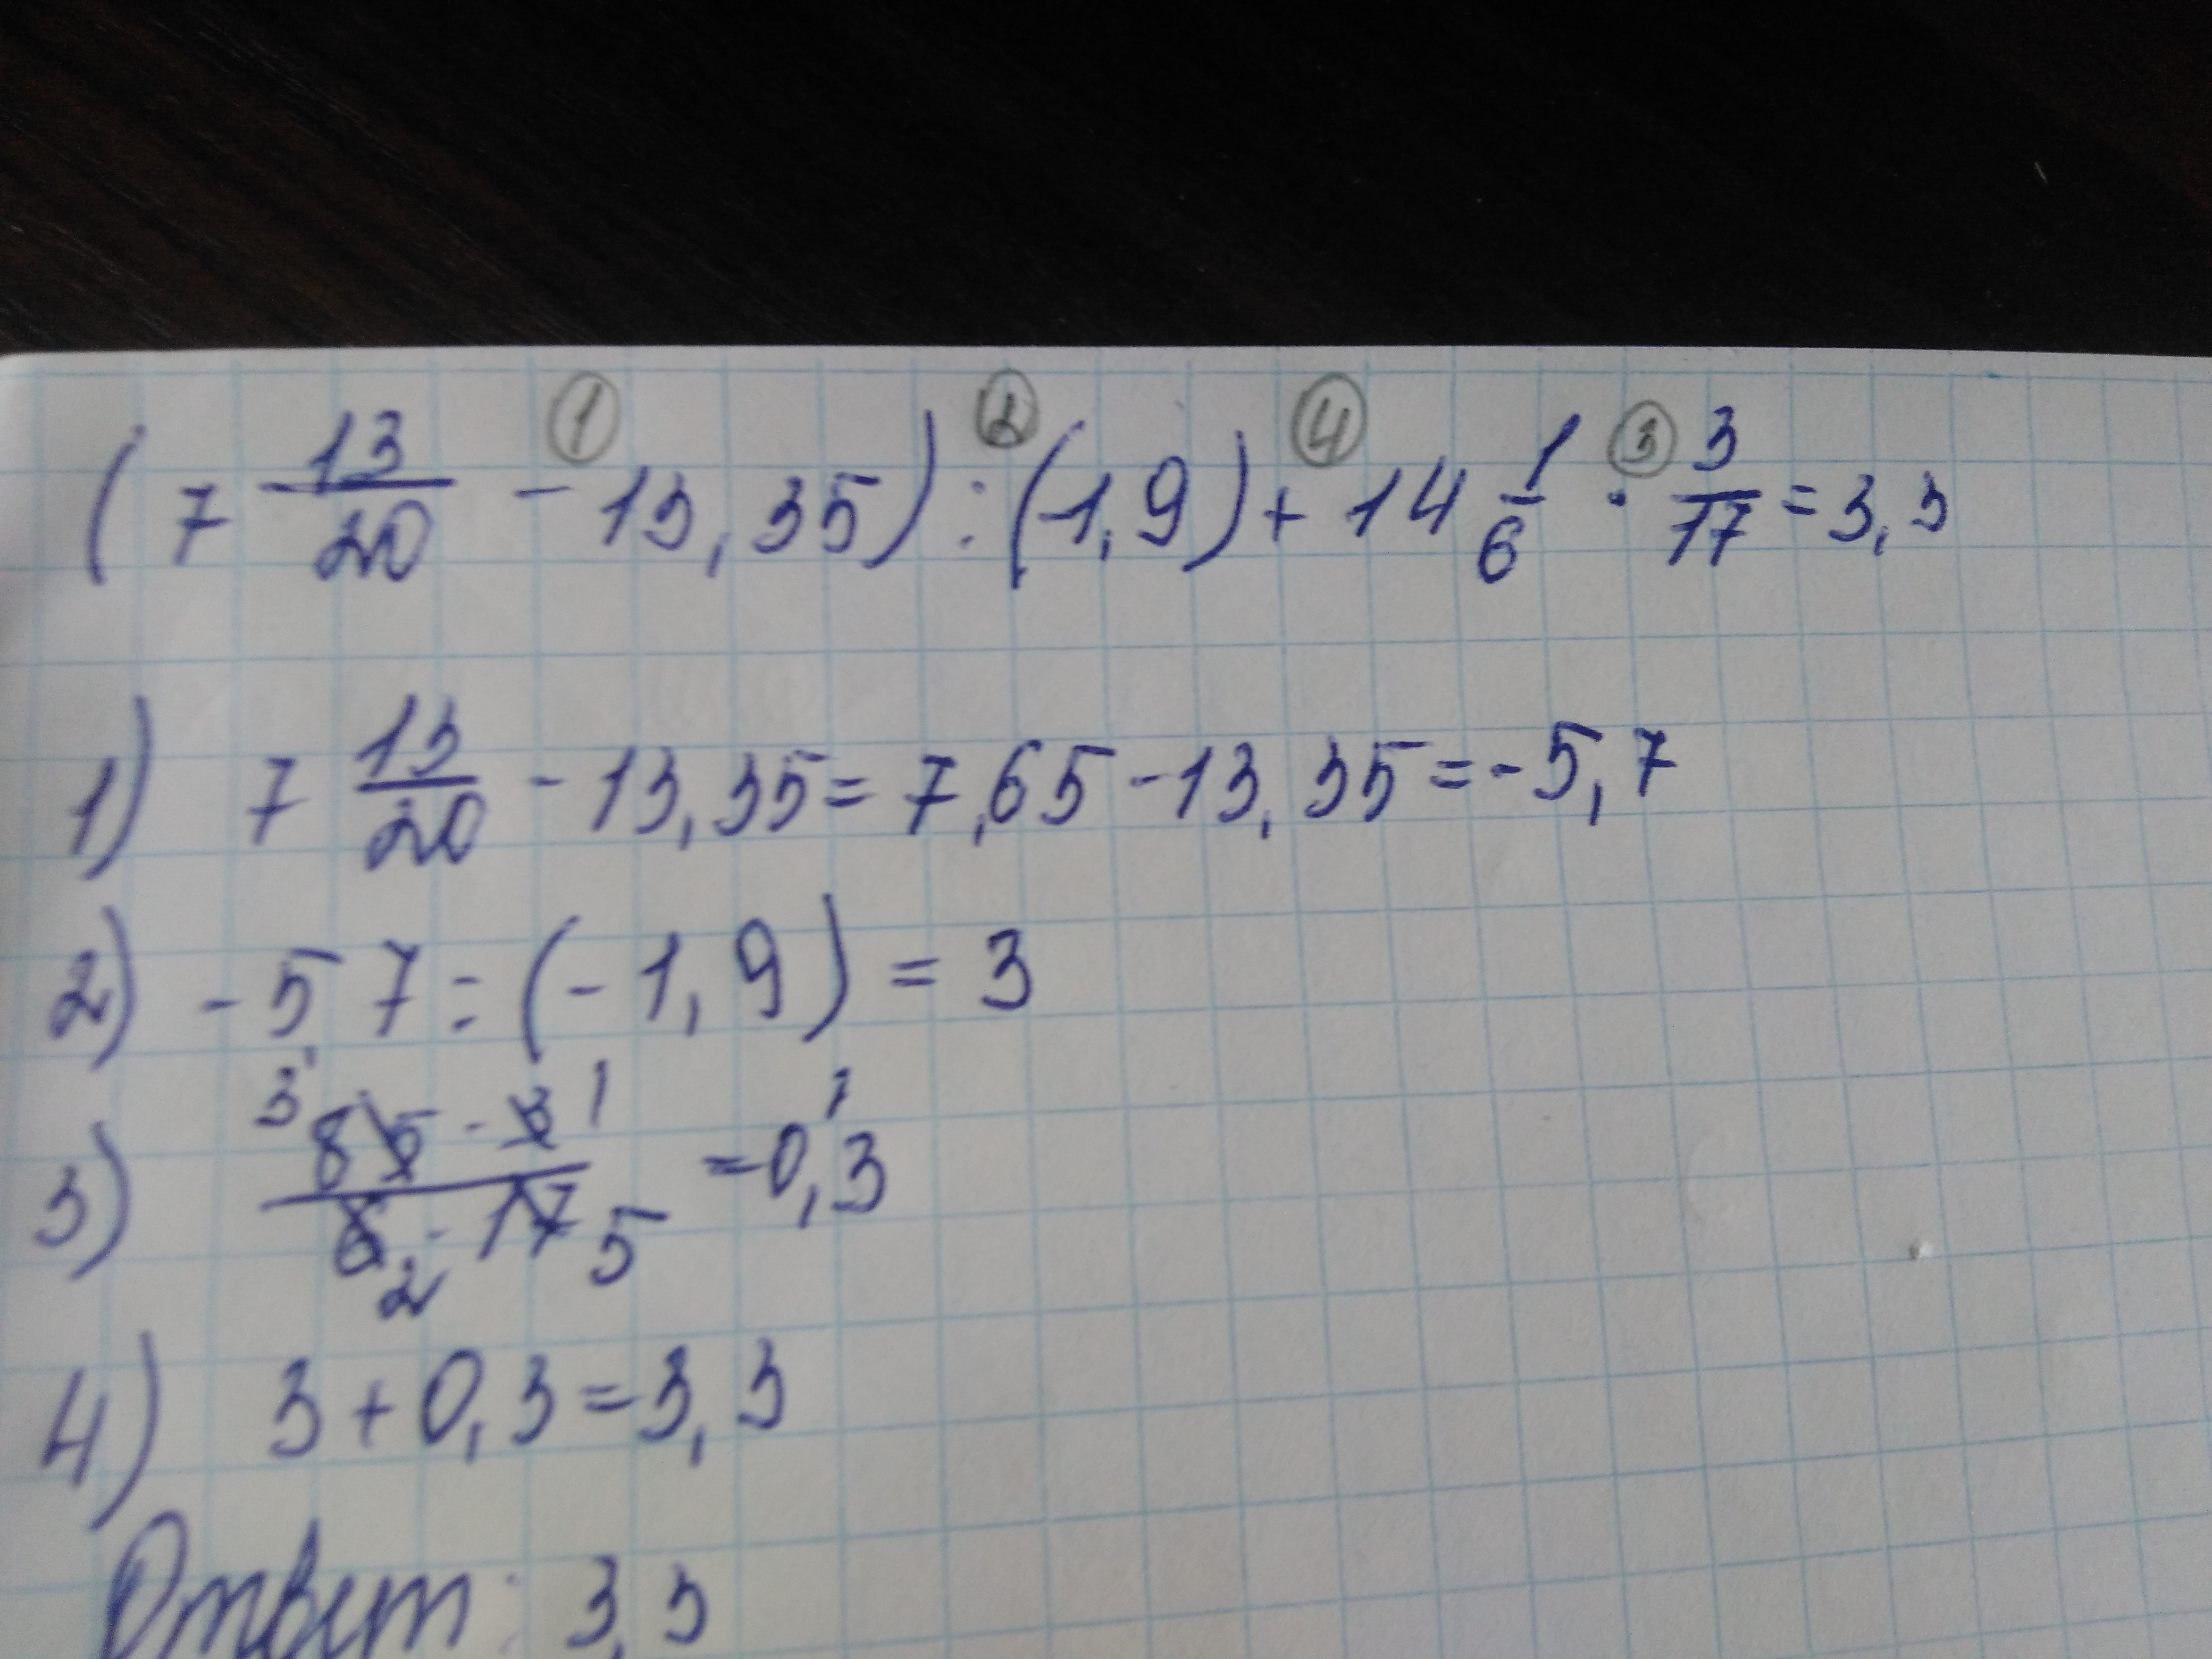 ① ② ④ ③
(7 13/20 - 13,35) : (-1,9) + 14 1/6 · 3/17 = 3,3
1) 7 13/20 - 13,35 = 7,65 - 13,35 = -5,7
2) -5,7 : (-1,9) = 3
3 1 1
3) 85 · 3 / 6 · 17 = 0,3
2 5
4) 3 + 0,3 = 3,3
Ответ: 3,3